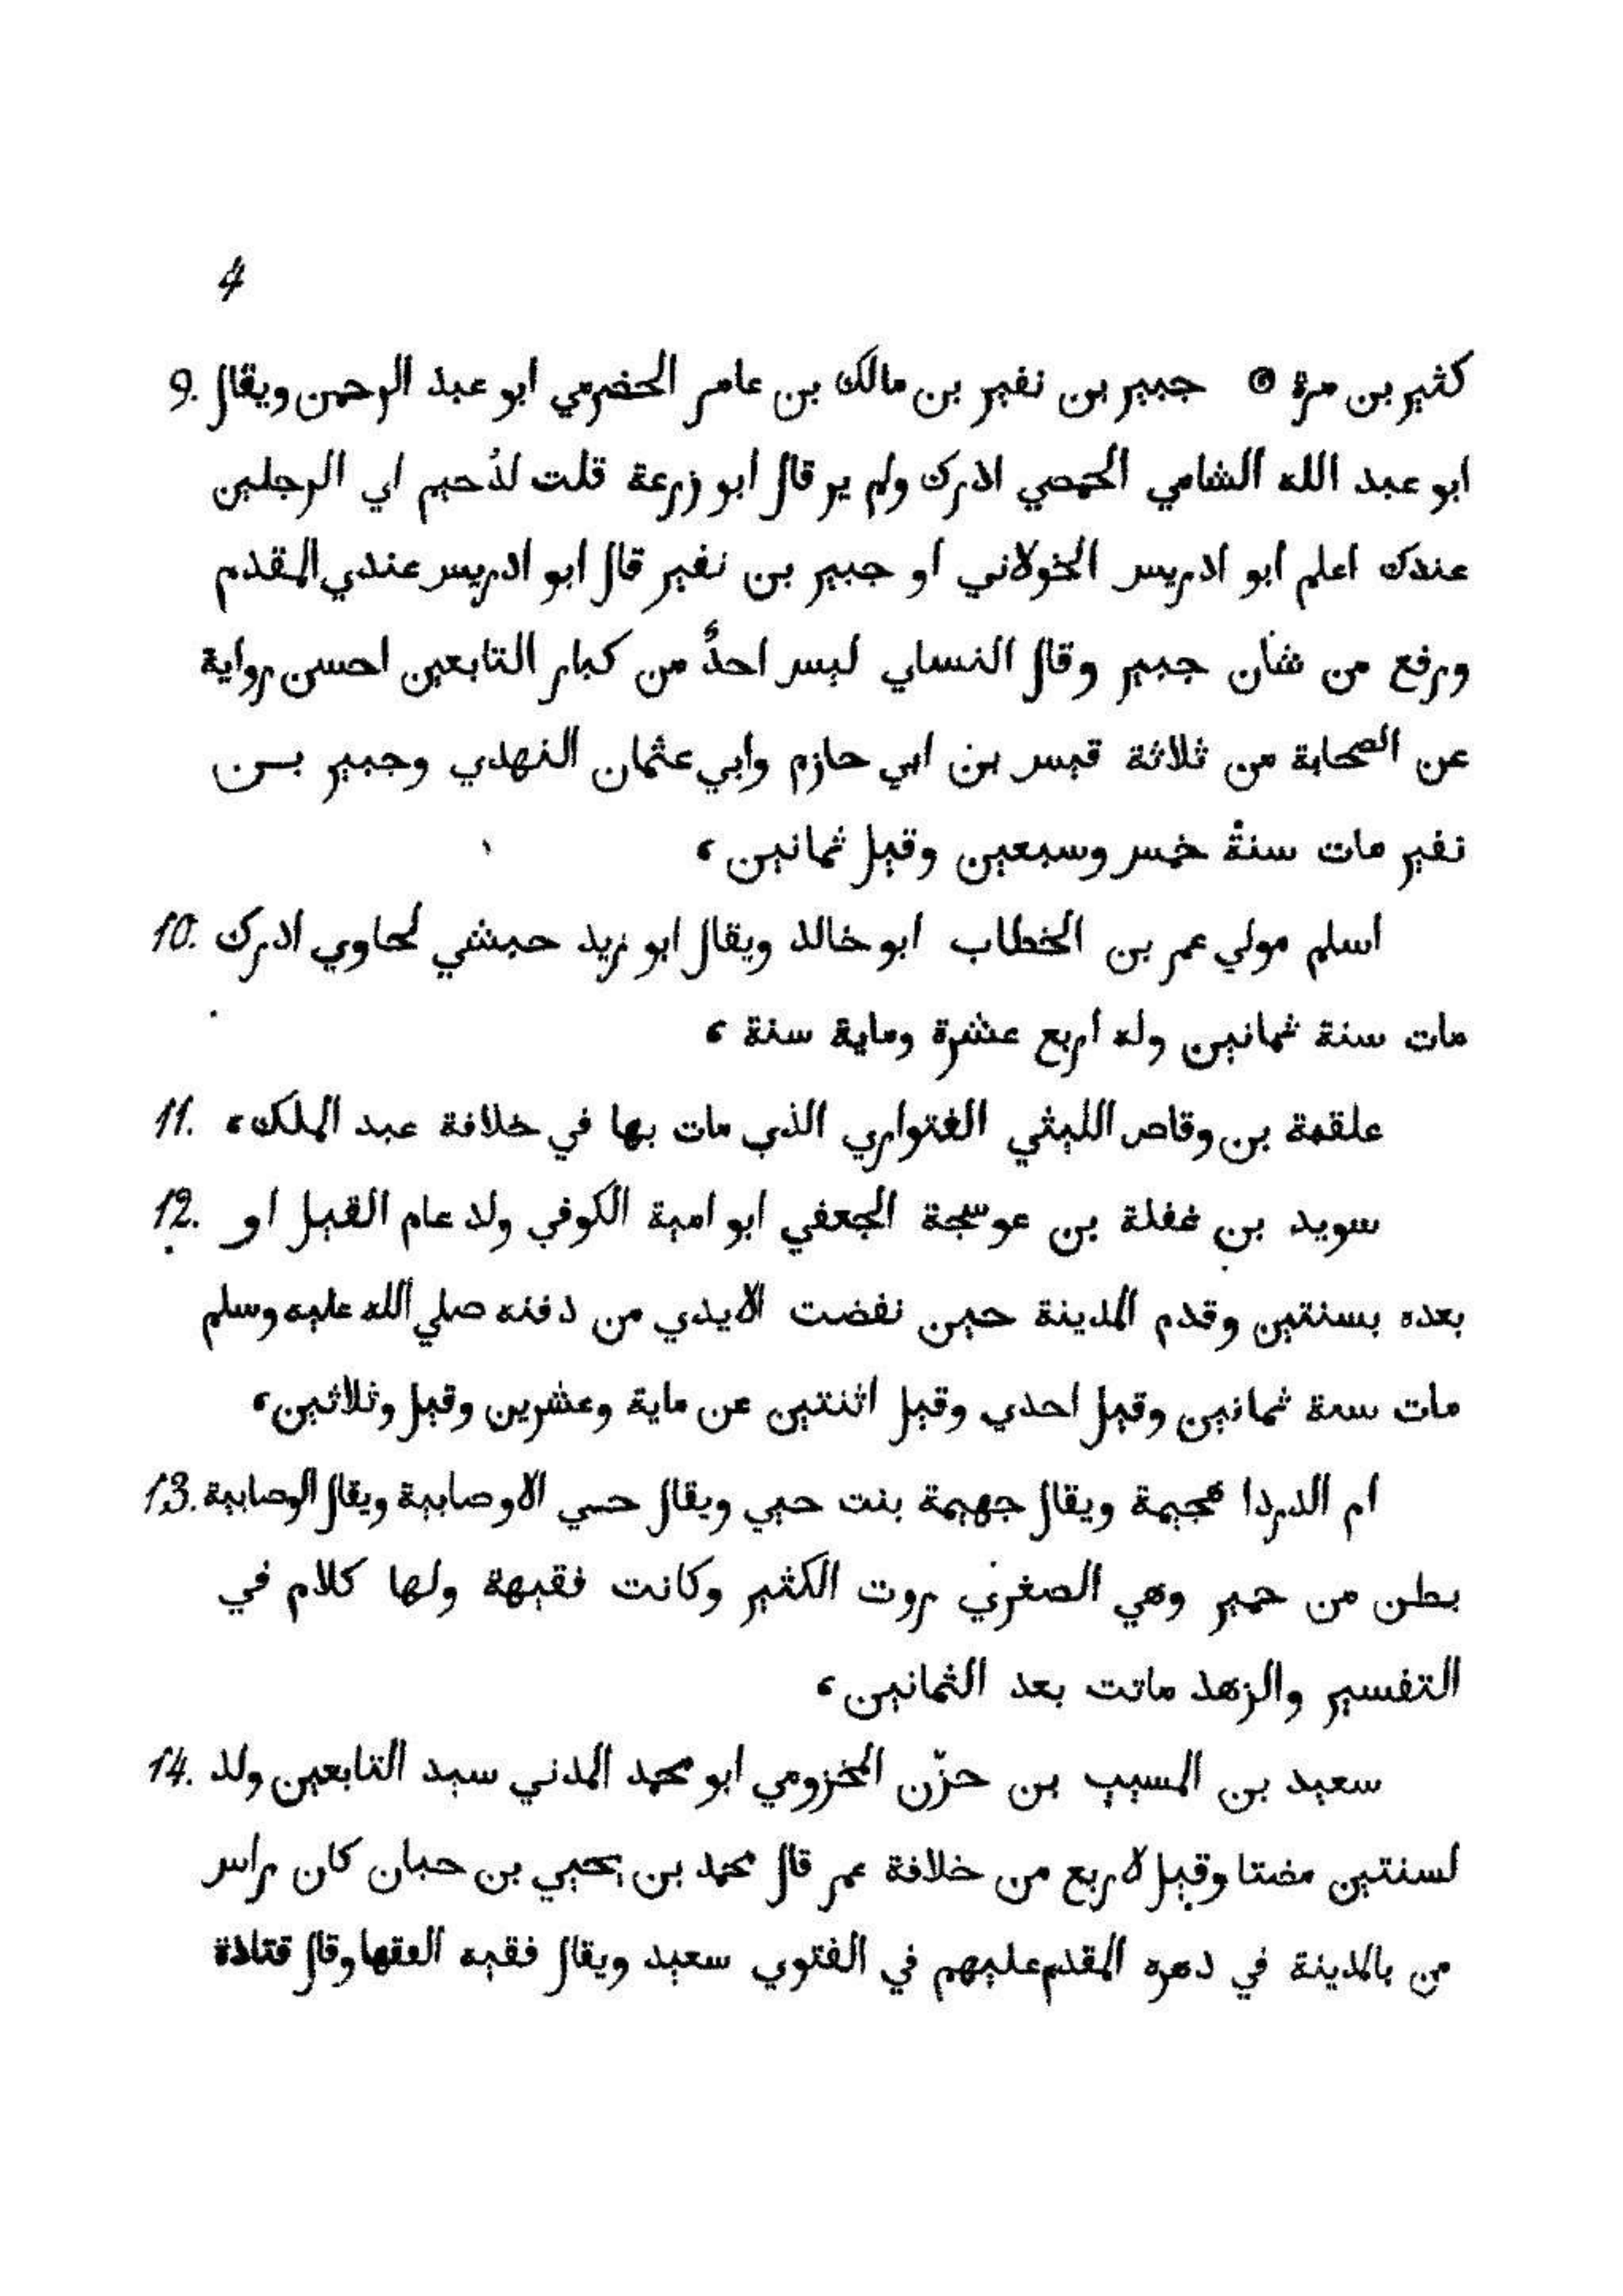 4
كثير بن مرة ۞ جبير بن نفير بن مالك بن عامر الحضرمي ابو عبد الرحمن ويقال .9
ابو عبد الله الشامي الحمصي ادرك ولم ير قال ابو زرعة قلت لدُحيم اي الرجلين
عندك اعلم ابو ادريس الخولاني او جبير بن نفير قال ابو ادريس عندي المقدم
ورفع من شأن جبير وقال النساي ليس احدٌ من كبار التابعين احسن رواية
عن الصحابة من ثلاثة قيس بن ابي حازم وابي عثمان النهدي وجبير بن
نفير مات سنة خمس وسبعين وقيل ثمانين ،
اسلم مولي عمر بن الخطاب ابو خالد ويقال ابو زيد حبشي لحاوي ادرك .10
مات سنة ثمانين وله اربع عشرة وماية سنة ،
علقمة بن وقاص الليثي الغتواري الذي مات بها في خلافة عبد الملك ، .11
سويد بن غفلة بن عوسجة الجعفي ابو امية الكوفي ولد عام الفيل او .12
بعده بسنتين وقدم المدينة حين نفضت الايدي من دفنه صلي الله عليه وسلم
مات سنة ثمانين وقيل احدي وقيل اثنتين عن ماية وعشرين وقيل وثلاثين ،
ام الدردا هجيمة ويقال جهيمة بنت حيي ويقال حي الاوصابية ويقال الوصابية .13
بطن من حمير وهي الصغري روت الكثير وكانت فقيهة ولها كلام في
التفسير والزهد ماتت بعد الثمانين ،
سعيد بن المسيب بن حزّن المخزومي ابو محمد المدني سيد التابعين ولد .14
لسنتين مضتا وقيل لاربع من خلافة عمر قال محمد بن يحيي بن حبان كان راس
من بالمدينة في دهره المقدم عليهم في الفتوي سعيد ويقال فقيه الفقها وقال قتادة